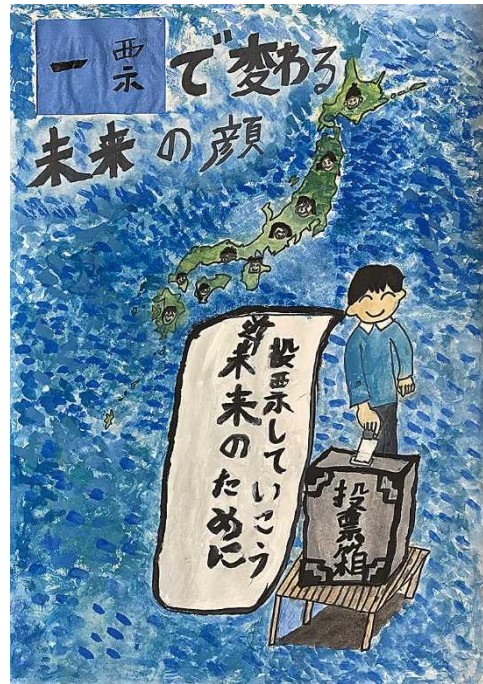 一票で変わる
未来の顔
投票していこう
未来のために
投票箱